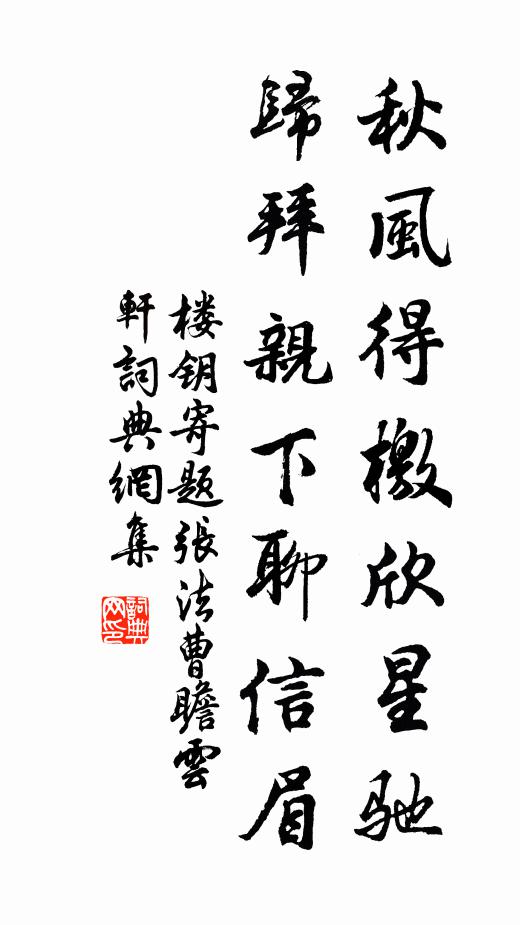 秋風得檄欣星馳
歸拜親下聊信眉
楼钥寄题張法曹瞻雲
軒詞典網集
詞典
网印